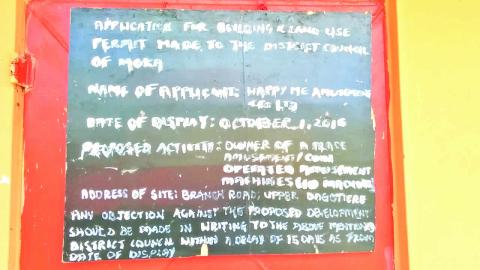 APPLICATION FOR BUILDING & LAND USE
PERMIT MADE TO THE DISTRICT COUNCIL
OF MOKA
NAME OF APPLICANT: HAPPY ME AMUSEMENT
LTD
DATE OF DISPLAY: OCTOBER 1, 2016
PROPOSED ACTIVITY: OWNER OF A PLACE
AMUSEMENT/COIN
OPERATED AMUSEMENT
MACHINES (10 MACHINES)
ADDRESS OF SITE: BRANCH ROAD, UPPER DAGOTIERE
ANY OBJECTION AGAINST THE PROPOSED DEVELOPMENT
SHOULD BE MADE IN WRITING TO THE ABOVE MENTIONED
DISTRICT COUNCIL WITHIN A DELAY OF 15 DAYS AS FROM
DATE OF DISPLAY